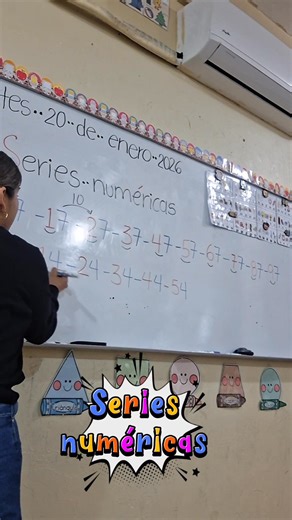 tes..20..de..enero..2026
Series..numéricas
10
7-17-27-37-47-57-67-77-87-97
14-24-34-44-54
Series
numéricas